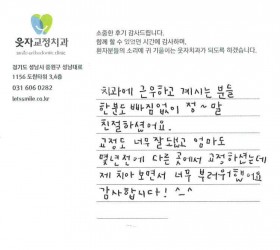 웃자교정치과
smile orthodontic clinic
경기도 성남시 중원구 성남대로
1156 도현타워 3,4층
031 606 0282
letssmile.co.kr
소중한 후기 감사드립니다.
함께 할 수 있었던 시간에 감사하며,
환자분들의 소리에 귀 기울이는 웃자치과가 되도록 하겠습니다.
치과에 근무하고 계시는 분들
한분도 빠짐없이 정~말
친절하셨어요.
교정도 너무 잘되었고 엄마도
몇년전에 다른 곳에서 교정하셨는데
제 치아 보면서 너무 부러워했어요
감사합니다! ^-^